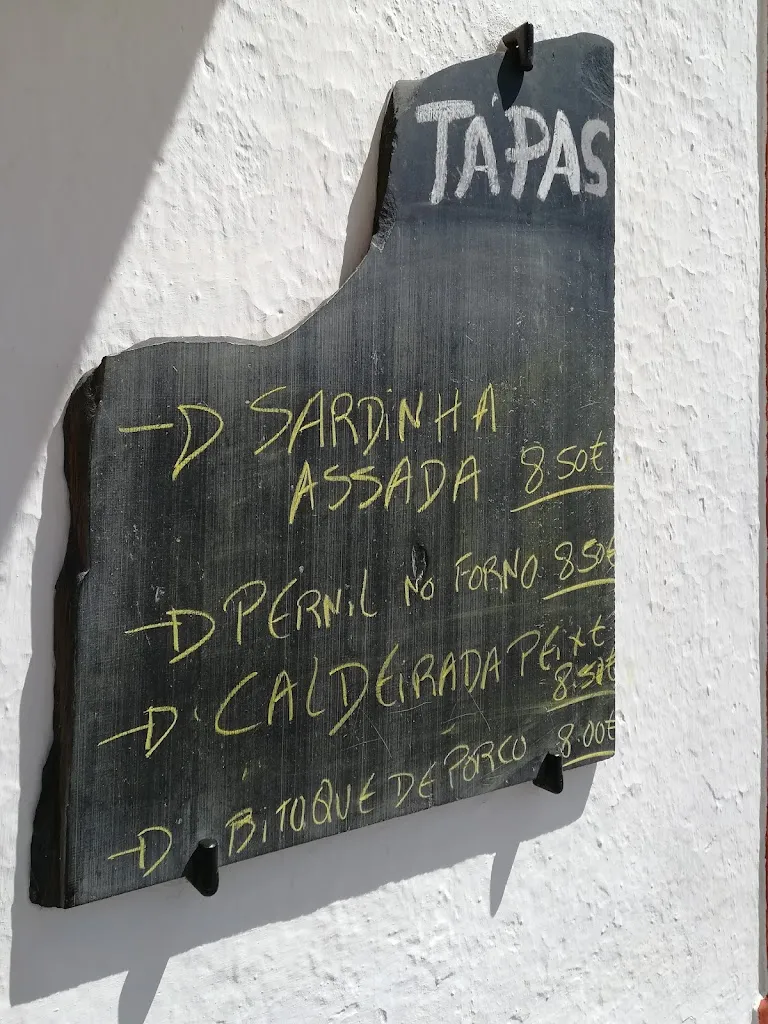 TÁPAS
SARDINHA
ASSADA 8.50€
PERNIL NO FORNO 8.50€
CALDEIRADA PEIXE
8.50€
BITOQUE DE PORCO 8.00€